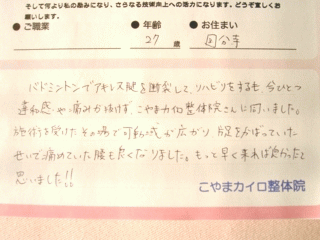 そして何より私の励みになり、さらなる技術向上への活力になります。どうぞ宜しくお
願いします。
●ご職業 ●年齢 ●お住まい
27 歳 国分寺
バドミントンでアキレス腱を断裂して、リハビリをするも今ひとつ
違和感や痛みが抜けず、こやまカイロ整体院さんに伺いました。
施術を受けたその場で可動域が広がり、足をかばっていた
せいで痛めていた腰も良くなりました。もっと早く来れば良かったって
思いました!!
こやまカイロ整体院